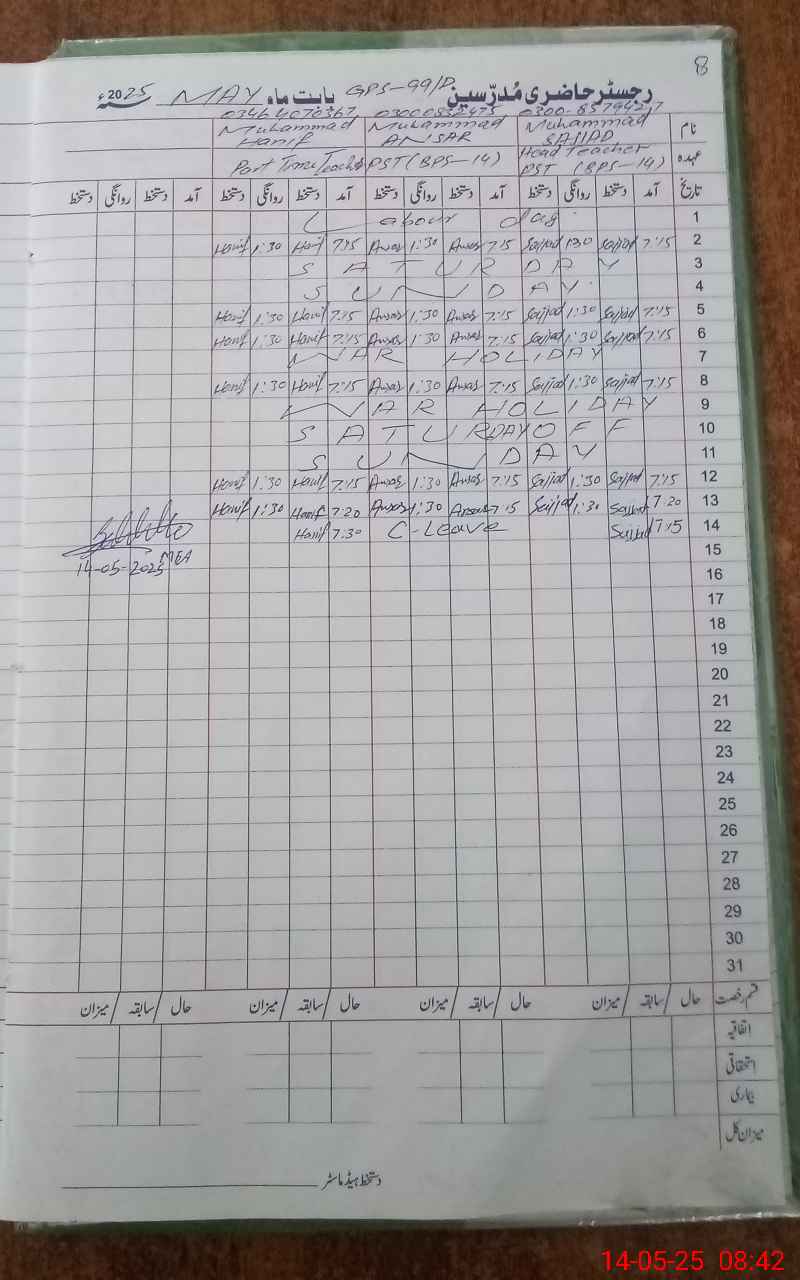 8
رجسٹر حاضری مُدرّسین GPS-99/D بابت ماہ MAY 2025ء
نام 0300-8579427 03000832475 03464070367
Muhammad SAJJAD Muhammad ANSAR Muhammad Hanif
عہدہ Head Teacher PST (BPS-14) PST (BPS-14) Part Time Teacher
تاریخ آمد دستخط روانگی دستخط آمد دستخط روانگی دستخط آمد دستخط روانگی دستخط آمد دستخط روانگی دستخط
1 Labour day
2 7:15 Sajjad 1:30 Sajjad 7:15 Ansar 1:30 Ansar 7:15 Hanif 1:30 Hanif
3 SATURDAY
4 SUNDAY
5 7:15 Sajjad 1:30 Sajjad 7:15 Ansar 1:30 Ansar 7:15 Hanif 1:30 Hanif
6 7:15 Sajjad 1:30 Sajjad 7:15 Ansar 1:30 Ansar 7:15 Hanif 1:30 Hanif
7 WAR HOLIDAY
8 7:15 Sajjad 1:30 Sajjad 7:15 Ansar 1:30 Ansar 7:15 Hanif 1:30 Hanif
9 WAR HOLIDAY
10 SATURDAY OFF
11 SUNDAY
12 7:15 Sajjad 1:30 Sajjad 7:15 Ansar 1:30 Ansar 7:15 Hanif 1:30 Hanif
13 7:20 Sajjad 1:30 Sajjad 7:15 Ansar 1:30 Ansar 7:20 Hanif 1:30 Hanif
14 7:15 Sajjad C-Leave 7:30 Hanif
14-05-2025 MEA
15
16
17
18
19
20
21
22
23
24
25
26
27
28
29
30
31
قسم رخصت حال / سابقہ / میزان حال / سابقہ / میزان حال / سابقہ / میزان حال / سابقہ / میزان
اتفاقیہ
استحقاقی
بیماری
میزان کل
دستخط ہیڈ ماسٹر
14-05-25 08:42